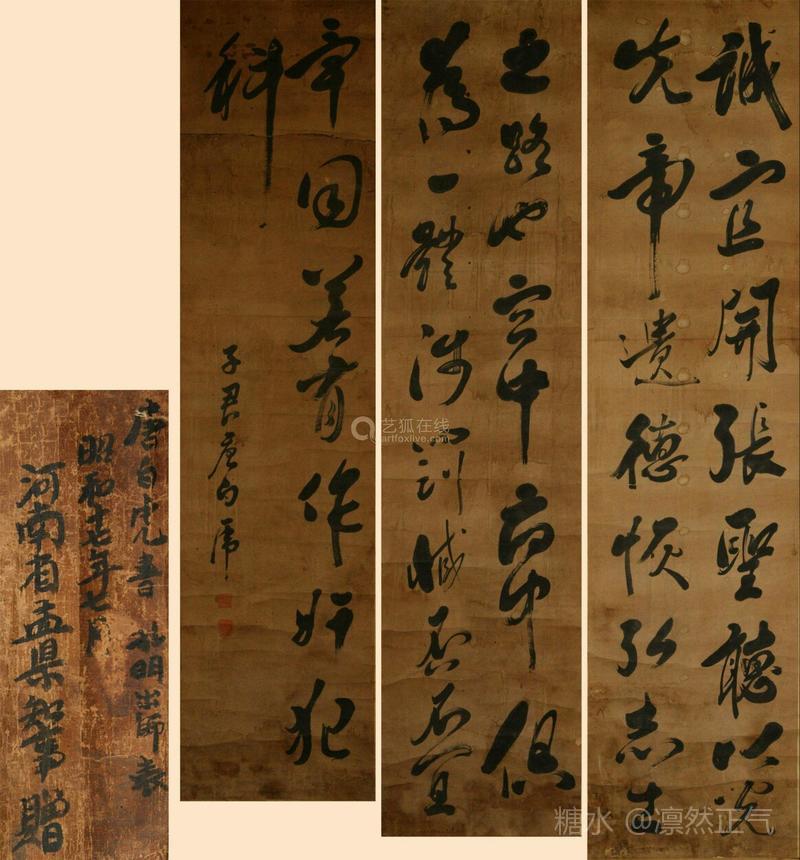 誠宜開張聖聽以光
先帝遺德恢弘志士
之路也宮中府中俱
為一體陟罰臧否不宜
异同若有作奸犯
科
子君唐白虎
唐白虎書 孔明出師表
昭和十七年七月
河南省孟県知事贈
艺狐在线
artfoxlive.com
糖水 @凛然正气